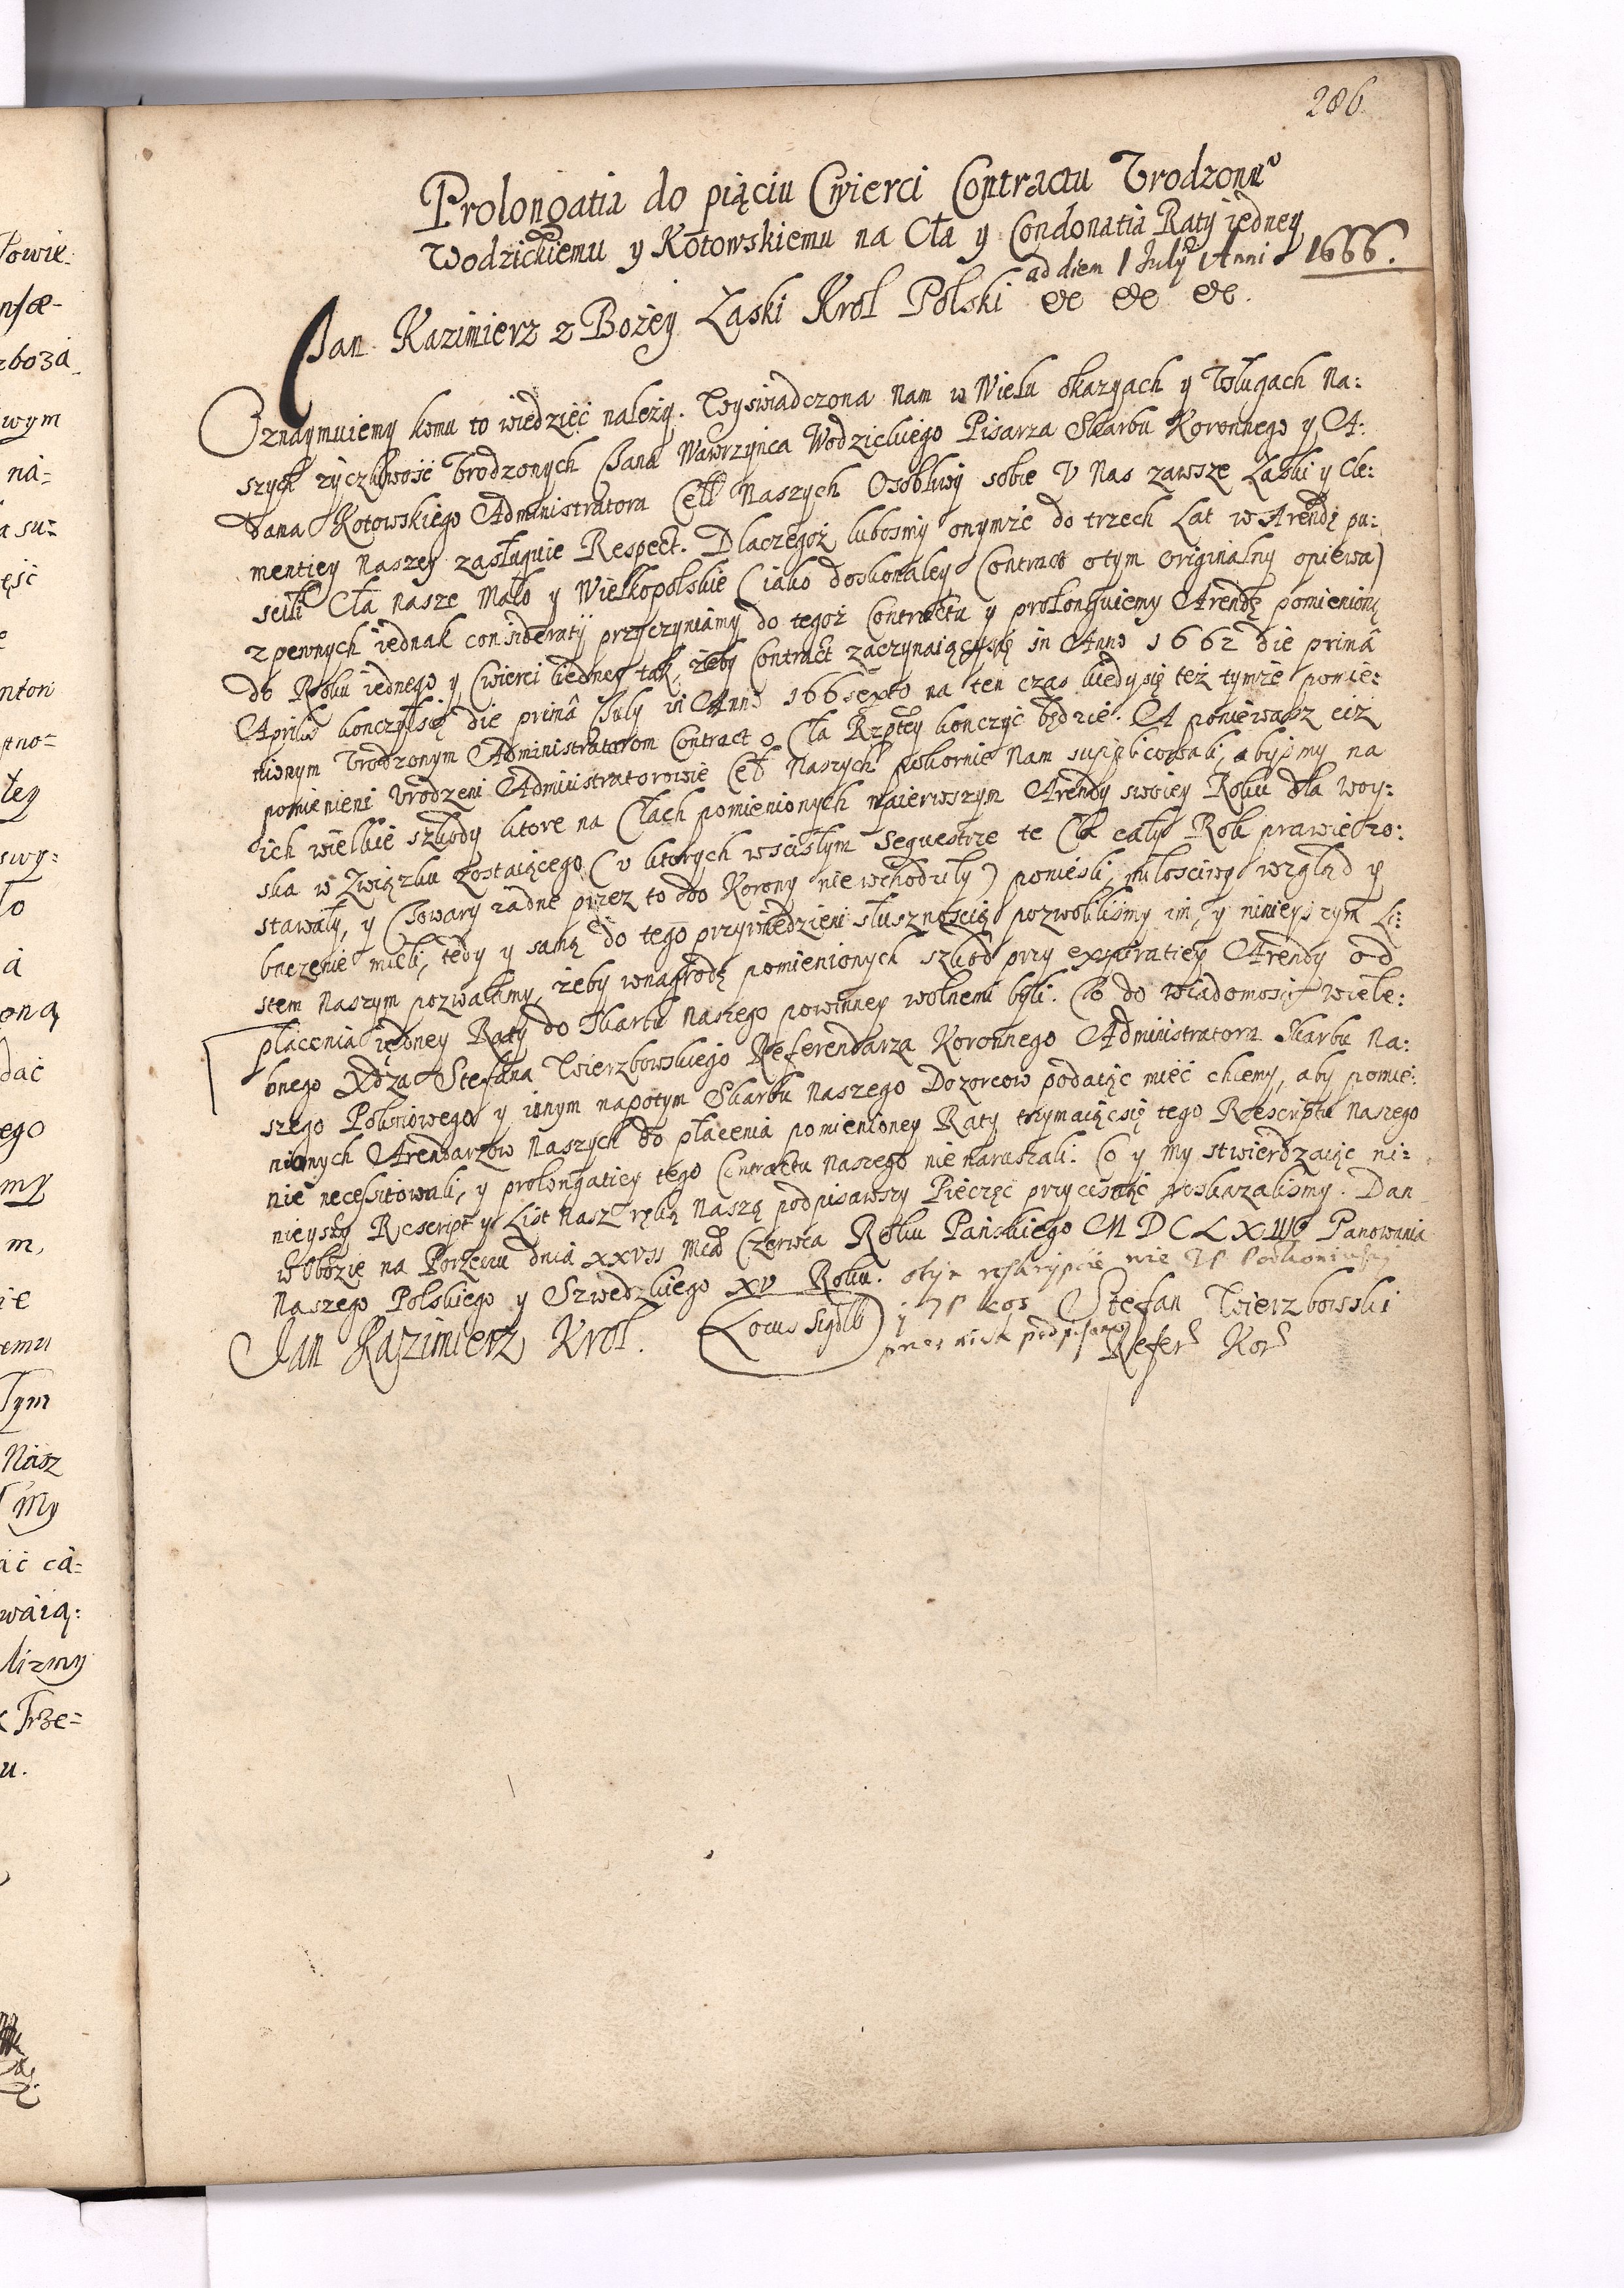 286.
Prolongatia do piąciu Cwierci Contractu Vrodzonᵘ
Wodzickiemu y Kotowskiemu na Cła y Condonatia Raty iedney
ad diem 1 July Anni 1666.
Jan Kazimierz z Bożey Łaski Krol Polski etc etc etc.
Oznaymuiemy komu to wiedzieć należy. Wyswiadczona Nam w Wielu okazyach y Vsługach Na:
szych życzliwość Vrodzonych Jana Wawrzynca Wodzickiego Pisarza Skarbu Koronnego y A:
dama Kotowskiego Administratora Cełł Naszych Osobliwy sobie V Nas zawsze Łaski y Cle:
mentiey Naszey zasługuie Respect. Dlaczegoż lubosmy onymże do trzech Lat w Arendę pu:
scili Cła Nasze Mało y Wielkopolskie (iako doskonaley Contract o tym originalny opiewa)
z pewnych iednak consideratij przyczyniamy do tegoż Contractu y prolonguiemy Arendę pomienioną
do Roku iednego y Cwierci iedney tak, żeby Contract zaczynaiącysię in Anno 1662 die primâ
Aprilis konczyłsię die primâ July in Anno 166sexto na ten czas kiedysię też tymże pomie:
nionym Vrodzonym Administratorom Contract o Cła Rzptey konczyć będzie. A poniewasz ciż
pomienieni Vrodzeni Administratorowie Ceł Naszych pokornie Nam supplicowali, abysmy na
ich wielkie szkody ktore na Cłach pomienionych w pierwszym Arendy swoiey Roku dla woy:
ska w Związku zostaiącego (v ktorych w scisłym Sequestrze te Cła cały Rok prawie zo:
stawały, y Towary żadne przez to do Korony nie wchodziły) poniesli, miłosciwy wzgląd y
baczenie mieli, tedy y samą do tego przywiedzieni słusznoscią pozwoliliśmy im, y ninieyszym Li:
stem Naszym pozwalamy, żeby w nagrodę pomienionych szkod przy expiratiey Arendy od
płacenia iedney Raty do Skarbu Naszego powinney wolnemi byli. Co do wiadomosci wiele:
bnego Xdza Stefana Wierzbowskiego Referendarza Koronnego Administratora Skarbu Na:
szego Pokoiowego y innym napotym Skarbu Naszego Dozorcow podaiąc mieć chcemy, aby pomie:
nionych Arendarzow Naszych do płacenia pomienioney Raty trzymaiącsię tego Rescriptu Naszego
nie necessitowali, y prolongatiey tego Contractu Naszego nie naruszali. Co y My stwierdzaiąc ni:
nieyszy Rescript y List Nasz ręką Naszą podpisawszy Pieczęć przycisnąć roskazalismy. Dan
w Obozie na Porzeczu dnia XXVII Mca Czerwca Roku Pańskiego Panowania
Naszego Polskiego y Szwedzkiego XV Roku. o tym nie
Jan Kazimierz Krol. Locus Sigilli Stefan Wierzbowski
przez podpisano Refer. Kor.